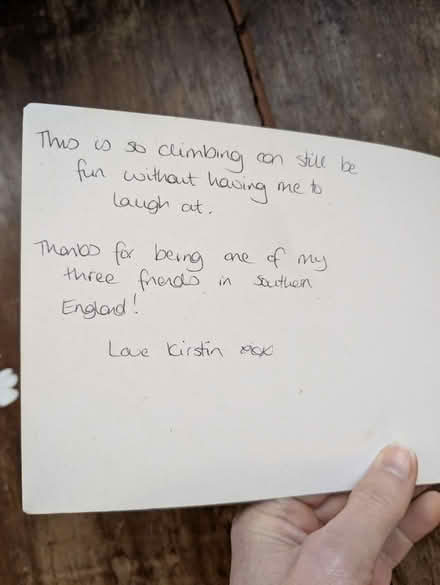 This is so climbing can still be
fun without having me to
laugh at.
Thanks for being one of my
three friends in Southern
England!
Love Kirstin xxx